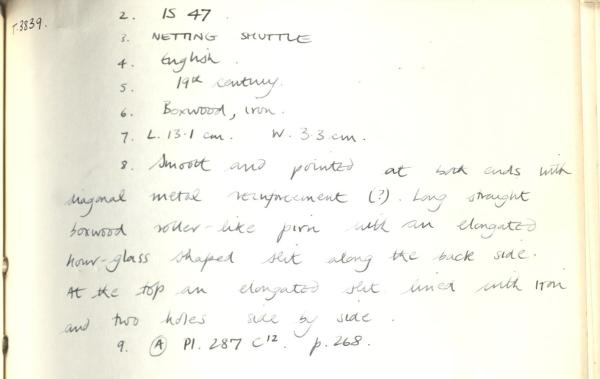 T.3839.
2. IS 47.
3. NETTING SHUTTLE
4. English.
5. 19th century.
6. Boxwood, iron.
7. L. 13.1 cm. W. 3.3 cm.
8. Smooth and pointed at both ends with
diagonal metal reinforcement (?). Long straight
boxwood roller-like pirn with an elongated
hour-glass shaped slit along the back side.
At the top an elongated slit lined with iron
and two holes side by side.
9. Ⓐ Pl. 287 C12. p. 268.